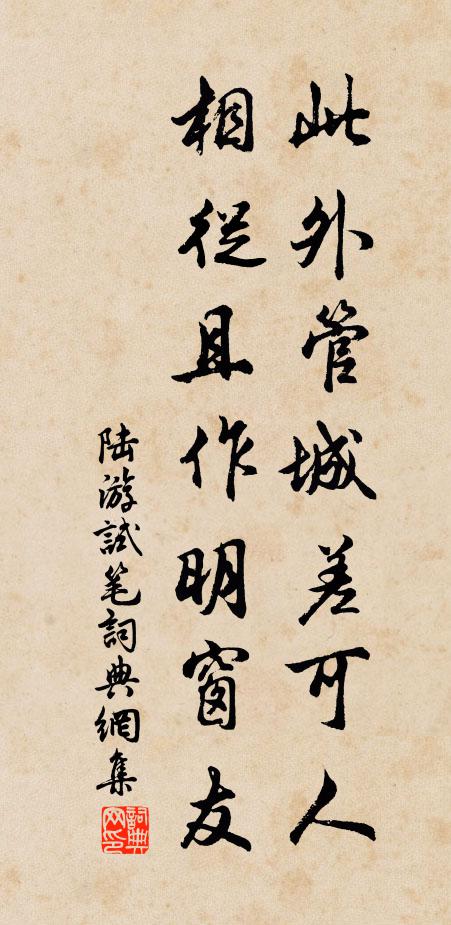 此外管城差可人
相從且作明窗友
陆游試笔詞典網集
詞典网印